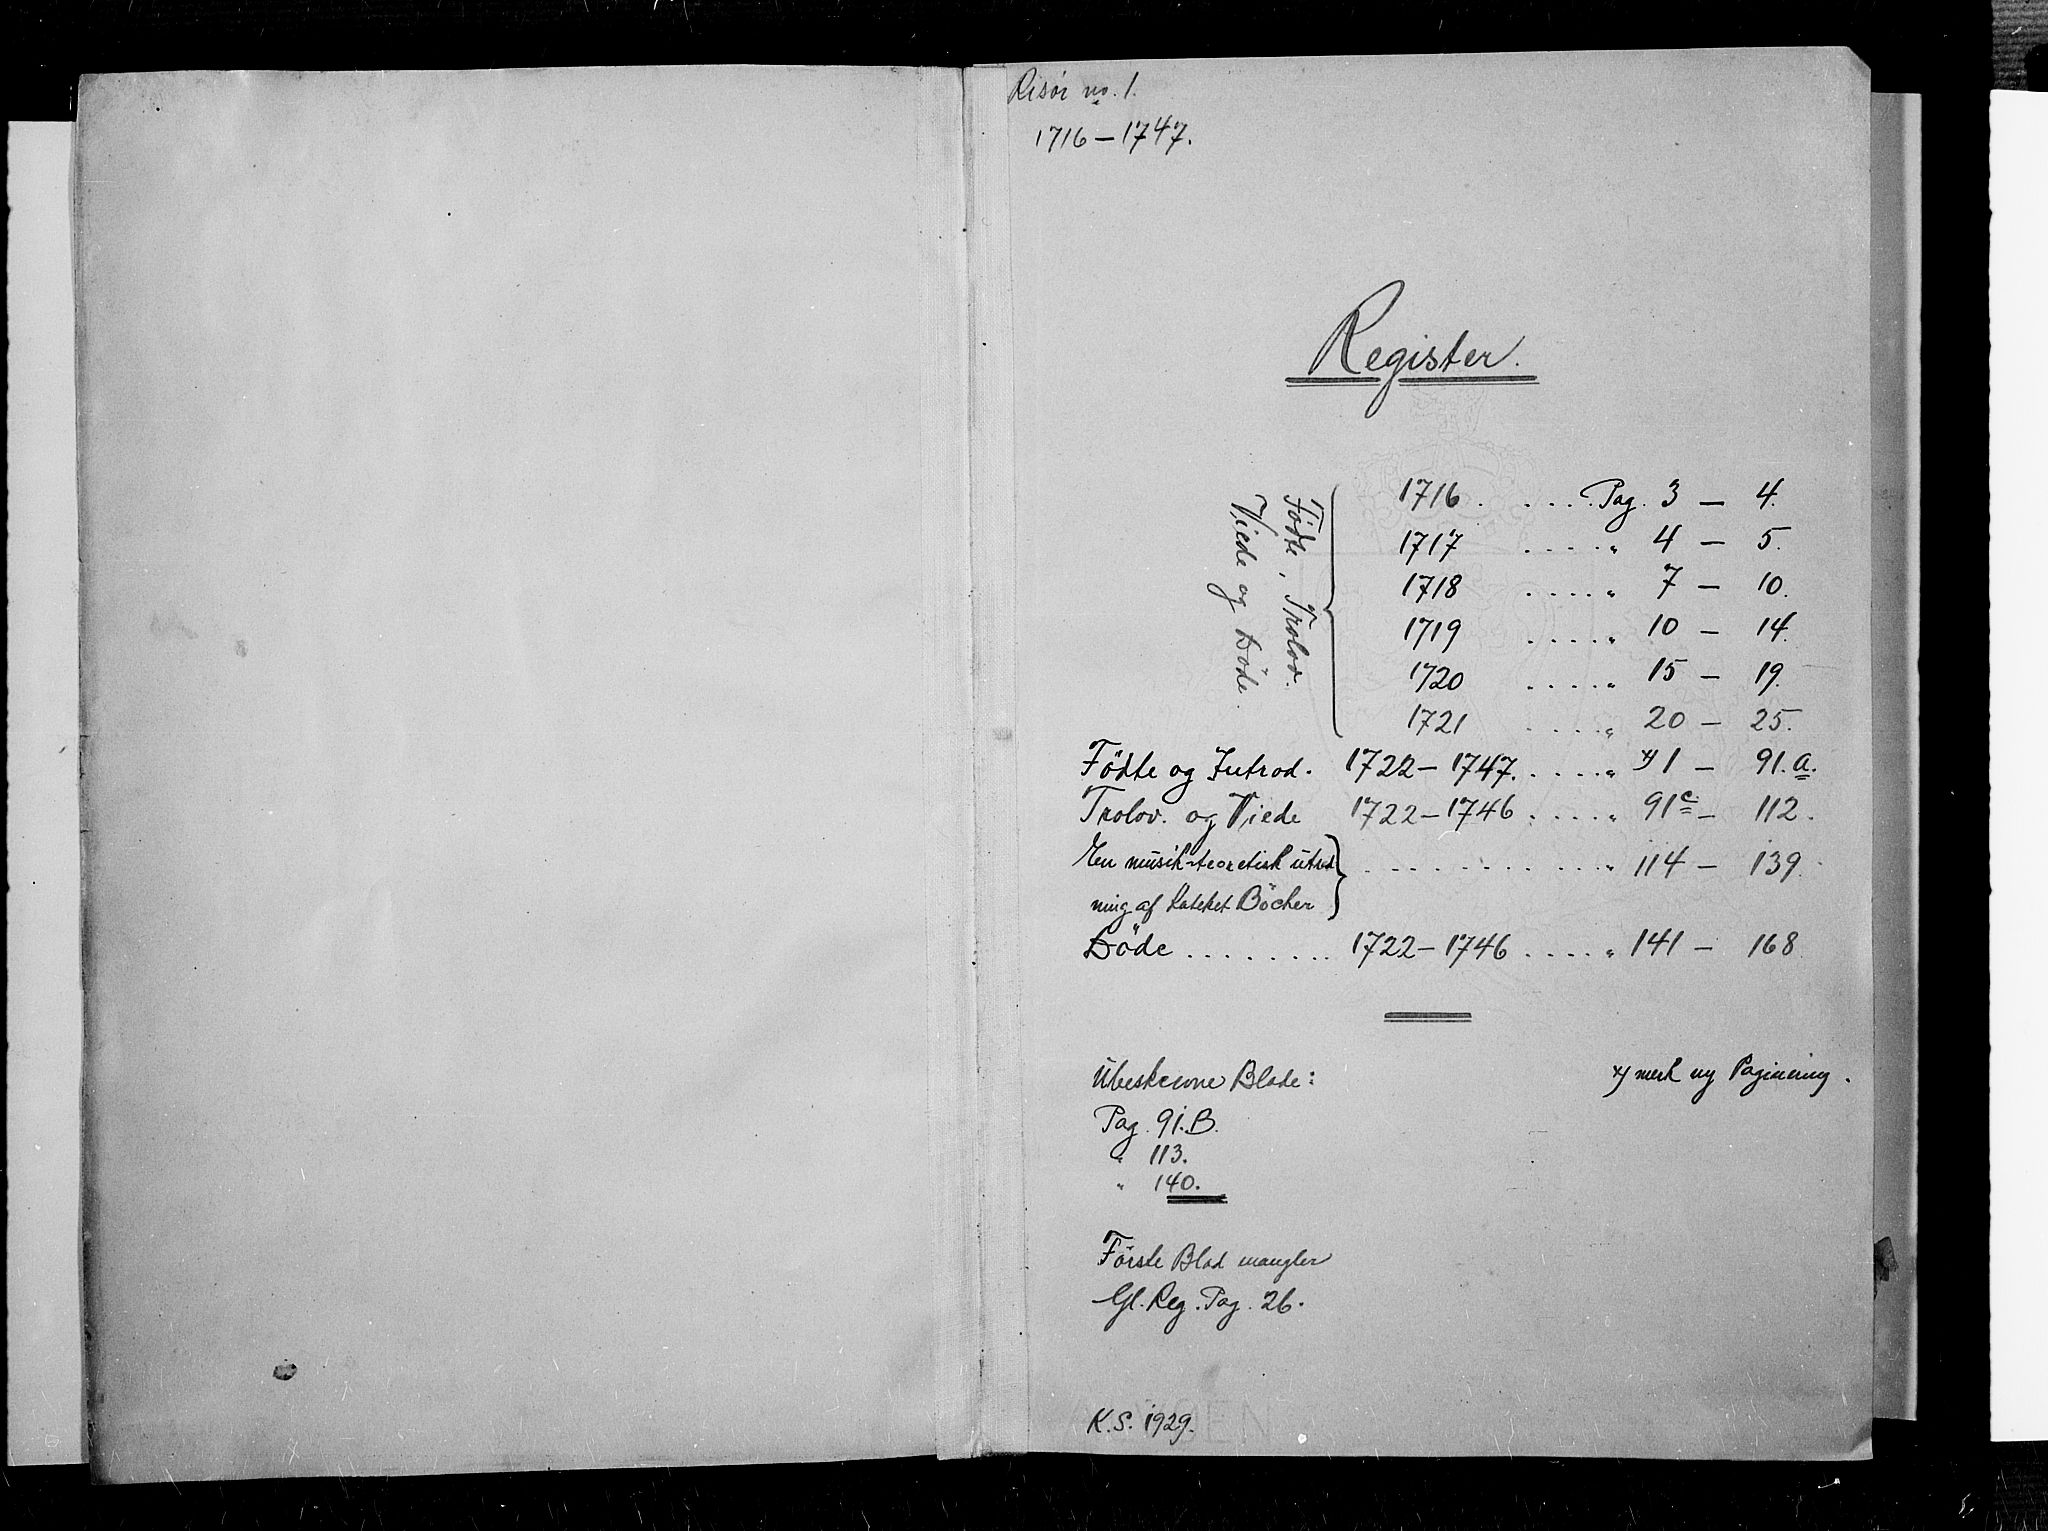 Risør no. 1.
1716 — 1747.
Register.
Födte, Trolov.
Viede og Döde.
1716 . . . . . Pag. 3 — 4.
1717 . . . . „ 4 — 5.
1718 . . . . „ 7 — 10.
1719 . . . . „ 10 — 14.
1720 . . . . „ 15 — 19.
1721 . . . . „ 20 — 25.
Födte og Introd. 1722 — 1747. . . . . „ x) 1 — 91.a.
Trolov. og Viede 1722 — 1746 . . . . „ 91c — 112.
En musik-teoretisk utred
. . . . . . . . . . „ 114 — 139.
ning af Kateket Böcher
Döde . . . . . . . . 1722 — 1746 . . . . „ 141 — 168
Ubeskrevne Blade:
x) merk ny Paginering.
Pag. 91.B.
„ 113.
„ 140.
Förste Blad mangler
Gl. Reg. Pag. 26.
K.S. 1929.
5.